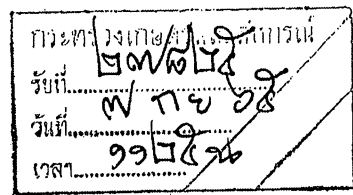 กระทรวงเกษตรและสหกรณ์
รับที่ ๒๗๘๒๕
วันที่ ๗ กย ๖๕
เวลา ๑๑๒๕ น